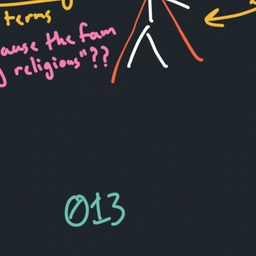 terms
ause the fam
religious"??
013